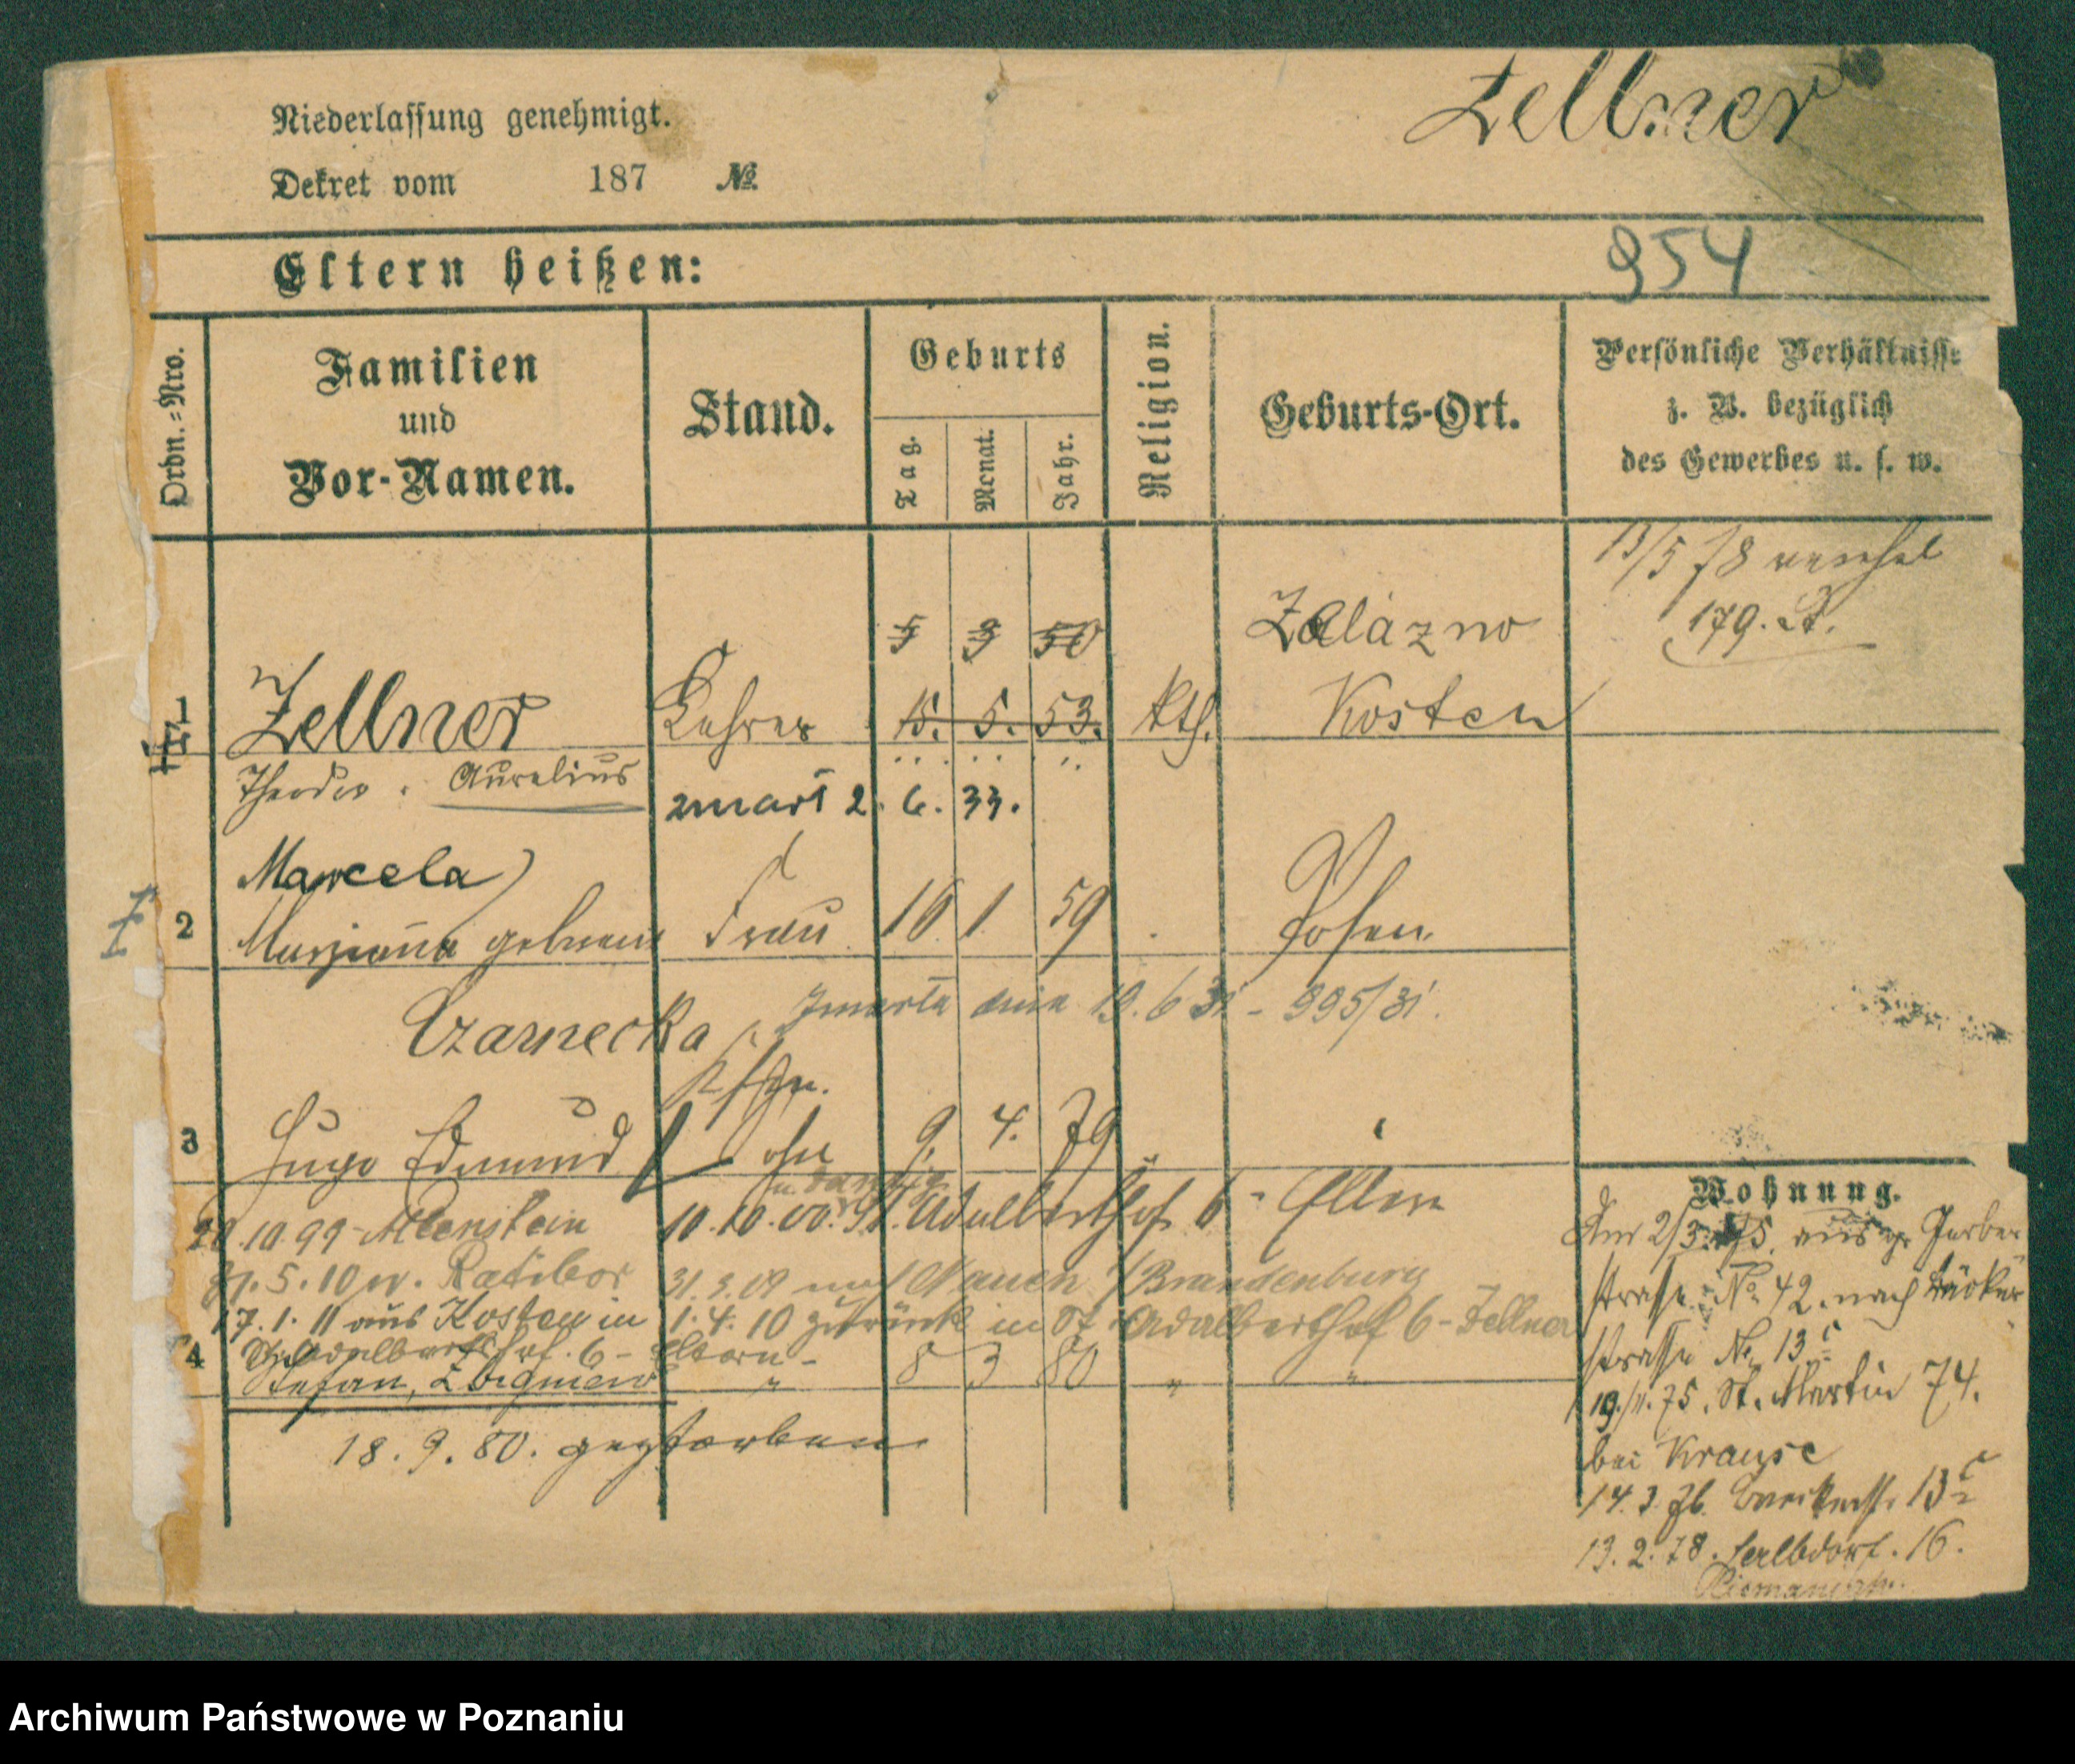 Zellner
Niederlassung genehmigt.
Dekret vom 187 №
Eltern heißen:
954
Ordn.=Nro.
Familien
und
Vor-Namen.
Stand.
Geburts
Tag.
Monat.
Jahr.
Religion.
Geburts-Ort.
Persönliche Verhältnisse
z. B. bezüglich
des Gewerbes u. s. w.
13/5 78
179.
5 9 50 Zelazno
1 Zellner Lehrer 15. 5. 53. kth. Kosten
Theodor Aurelius
zmarł 2. 6. 33.
Marcela
2 Marjanna geborene Frau 16 1 59 Posen
Czarnecka zmarła dnia 19.6 31 - 995/31.
3 Hugo Edmund Sohn 9. 4. 79
n. Danzig
29.10.99 Allenstein 10.10.00. St. Adalberthof 6 - Eltern
31.5.10 n. Ratibor 31.3.09 nach Nauen / Brandenburg
17.1.11 aus Kosten in 1.4.10 zurück in St. Adalberthof 6 - Zellner
St. Adalberthof. 6 - Eltern -
4 Stefan, Zbigniew " 8 3 80 " "
18.9.80. gestorben
Wohnung.
Am 2/3. 75. aus gr Gerber
strasse No 42. nach Bäcker
strasse No 13c
19./11. 75. St. Martin 74.
bei Krause
14.3.76. Baeckerstr. 13c
13.2.78. Halbdorf. 16.